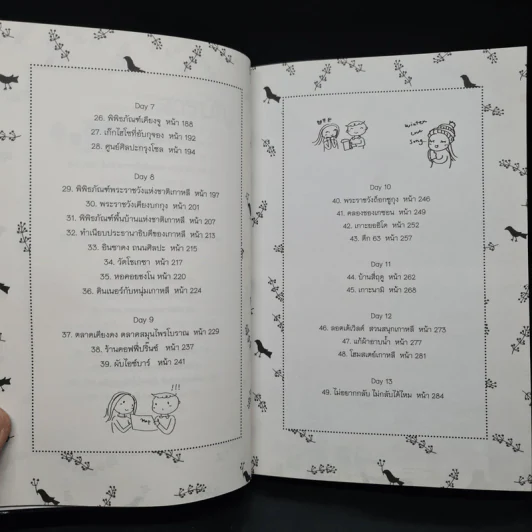 Day 7
26. พิพิธภัณฑ์เคียงจู หน้า 188
27. เก๊กโฮโซที่อับกุซอง หน้า 192
28. ศูนย์ศิลปะกรุงโซล หน้า 194
Day 8
29. พิพิธภัณฑ์พระราชวังแห่งชาติเกาหลี หน้า 197
30. พระราชวังเคียงบกกุง หน้า 201
31. พิพิธภัณฑ์พื้นบ้านแห่งชาติเกาหลี หน้า 207
32. ทำเนียบประธานาธิบดีของเกาหลี หน้า 213
33. อินซาดง ถนนศิลปะ หน้า 215
34. วัดโชเกซา หน้า 217
35. หอคอยชงโน หน้า 220
36. ดินเนอร์กับหนุ่มเกาหลี หน้า 224
Day 9
37. ตลาดเคียงดง ตลาดสมุนไพรโบราณ หน้า 229
38. ร้านคอฟฟี่ปริ๊นซ์ หน้า 237
39. ผับไอซ์บาร์ หน้า 241
!!!
Day 10
40. พระราชวังถ็อกซูกุง หน้า 246
41. คลองชองเกชอน หน้า 249
42. เกาะยออีโด หน้า 252
43. ตึก 63 หน้า 257
Day 11
44. บ้านสี่ฤดู หน้า 262
45. เกาะนามิ หน้า 268
Day 12
46. ลอตเต้เวิลด์ สวนสนุกเกาหลี หน้า 273
47. แก้ผ้าอาบน้ำ หน้า 277
48. โฮมสเตย์เกาหลี หน้า 281
Day 13
49. ไม่อยากกลับ ไม่กลับได้ไหม หน้า 284